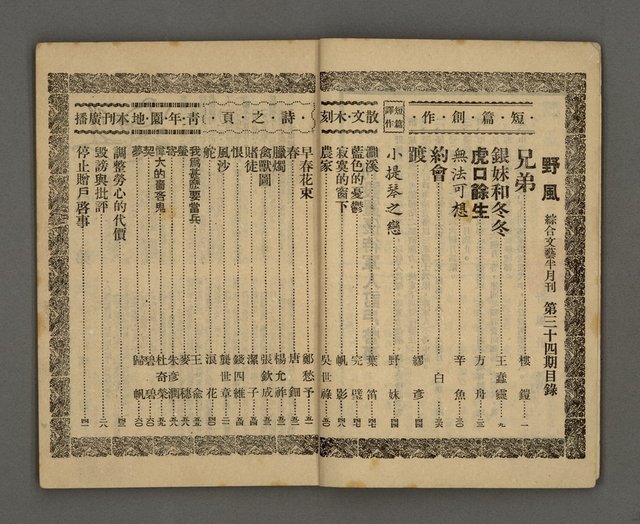 野風 綜合文藝半月刊 第三十四期目錄
短篇創作
兄弟 樓鎧 一
銀妹和冬冬 王蠢靈 九
虎口餘生 方舟 三
無法可想 辛魚
約會 白
蹤 繆彥
短篇譯作
小提琴之戀 野妹
散文木刻
灝溪 葉笛
藍色的憂鬱 完璧
寂寞的窗下 帆影
農家 吳世祿
詩之頁
早春花束 鄭愁予
春 唐鈿
臘燭 楊允祚
禽獸圖 張欽成
賭徒 潔子
恨 錢四維
風沙 龔世章
舵 浪花
青年園地
我為甚麼要當兵 王金
螢 麥穗
窗 朱彥潤
偉大的嗇吝鬼 杜奇榮
契 碧碧
夢 歸帆
本刊廣播
調整勞心的代價
毀謗與批評
停止贈戶啓事